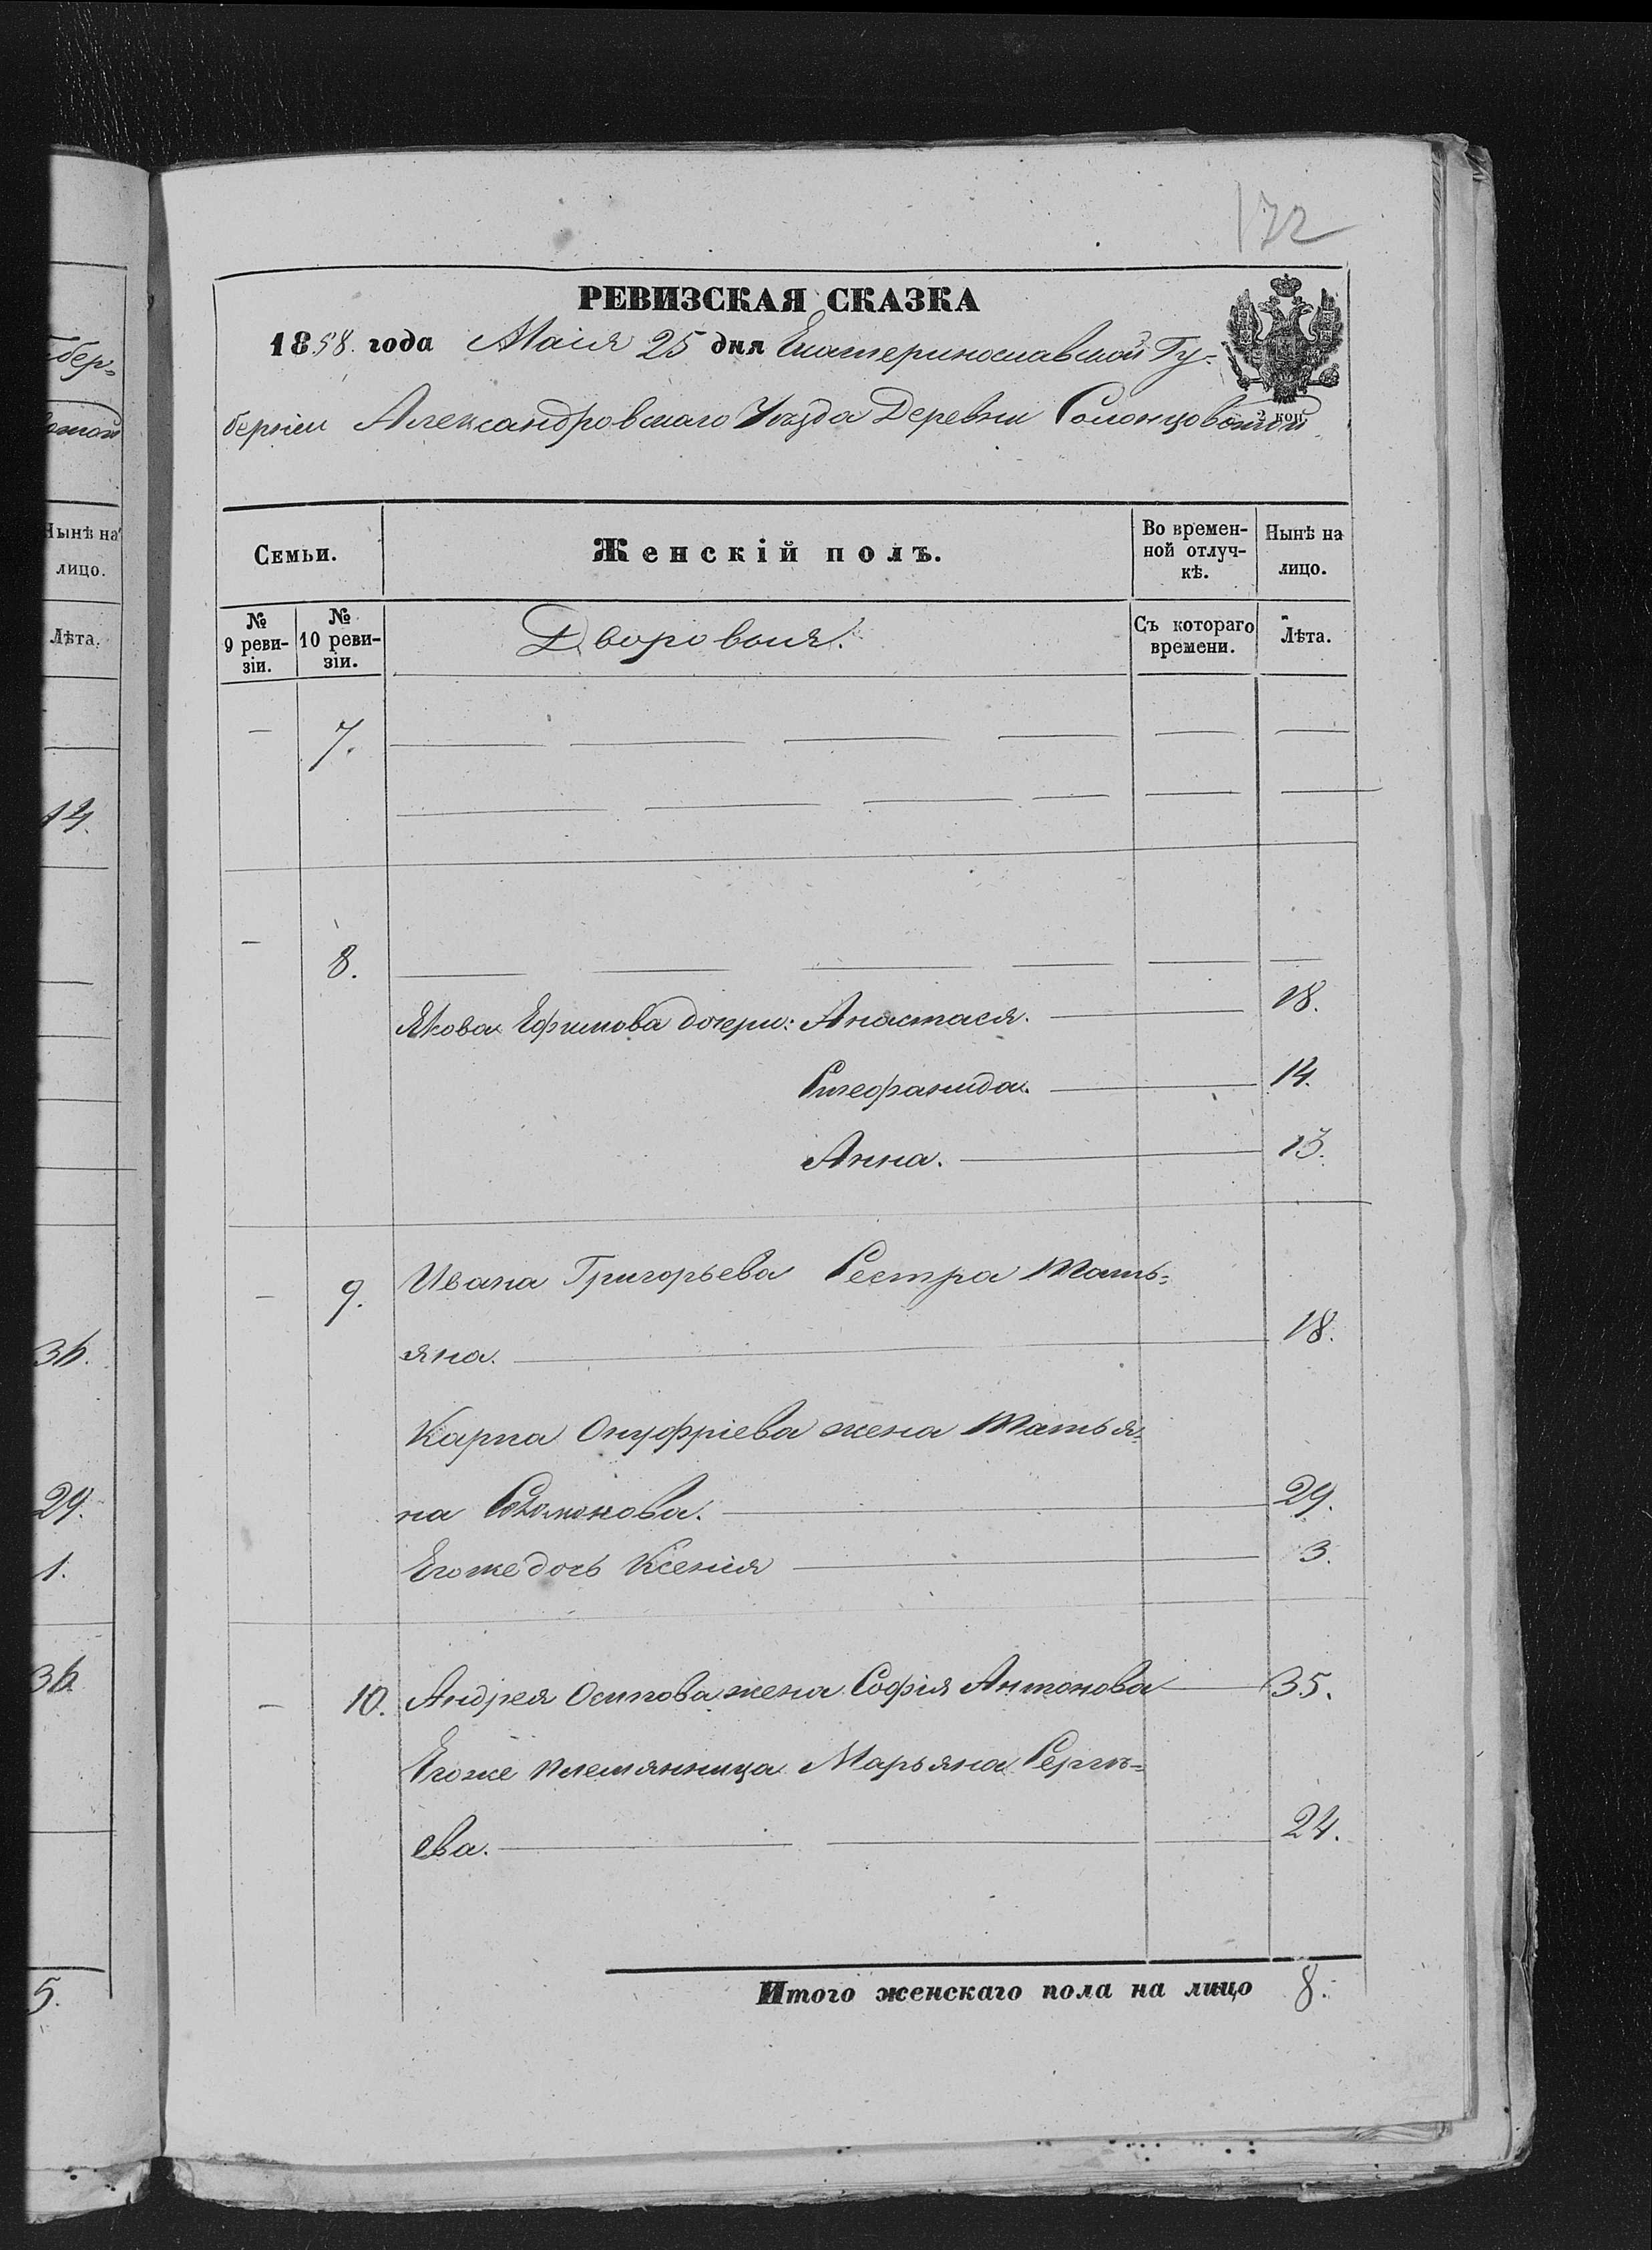 бер=
14.
36.
29.
1.
36
5.
Нынѣ на
лицо.
Лѣта.
172
РЕВИЗСКАЯ СКАЗКА
1858. года Маія 25 дня Екатеринославской Гу=
берніи Александровскаго Уѣзда Деревни Солонцоватой
2 коп.
Семьи.
Женскій полъ.
Во времен-
ной отлуч-
кѣ.
Нынѣ на
лицо.
№
9 реви-
зіи.
№
10 реви-
зіи.
Дворовыя.
Съ котораго
времени.
Лѣта.
— 7. — — — — — —
— — — — — —
— 8. — — — — — —
Якова Ефимова дочери: Анастася. — 18.
Стефанида. — 14.
Анна. — 13.
— 9. Ивана Григорьева Сестра Тать=
яна. — 18.
Карпа Онуфріева жена Татья=
на — 29.
Егоже дочь Ксенія — 3.
— 10. Андрея Осипова жена Софія Антонова — 35.
Егоже племянница Марьяна Сергѣ=
ева. — 24.
Итого женскаго пола на лицо 8.